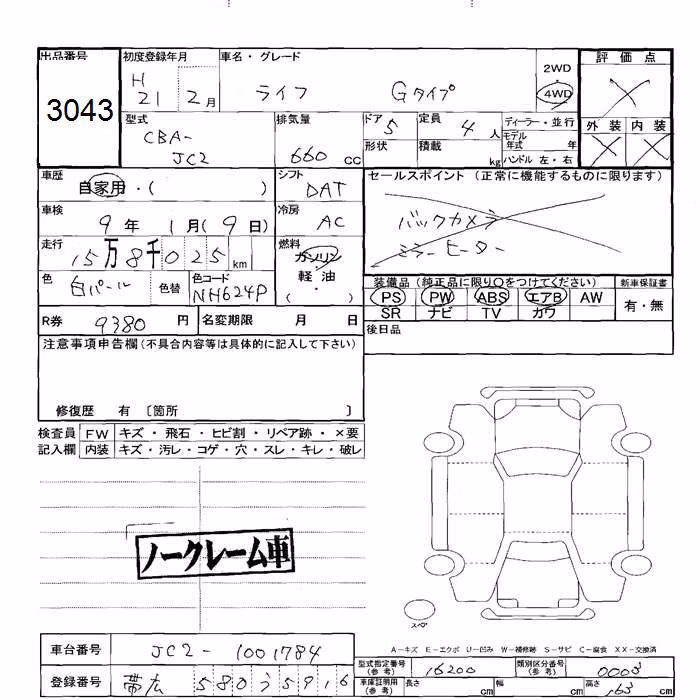 出品番号 初度登録年月 車名・グレード 2WD 評価点
3043 H 21 2月 ライフ Gタイプ 4WD
型式 排気量 ドア 定員 ディーラー・並行 外装 内装
CBA- JC2 660 CC 5 4人 モデル年式 年
形状 積載 kg ハンドル 左・右
車歴 シフト セールスポイント (正常に機能するものに限ります)
自家用・( ) DAT
車検 冷房 バックカメラ
9年 1月(9日) AC ミラーヒーター
走行 燃料
15万8千025km ガソリン
軽油
( )
色 色替 色コード 装備品 (純正品に限り○をつけてください) 新車保証書
白パール NH624P PS PW ABS エアB AW 有・無
SR ナビ TV カワ
R券 9380円 名変期限 月 日 後日品
注意事項申告欄(不具合内容等は具体的に記入して下さい)
修復歴 有 〔箇所 〕
検査員 FW キズ・飛石・ヒビ割・リペア跡・×要
記入欄 内装 キズ・汚レ・コゲ・穴・スレ・キレ・破レ
ノークレーム車
スペア
A-キズ E-エクボ U-凹み W-補修跡 S-サビ C-腐食 XX-交換済
車台番号 JC2-1001784 型式指定番号(参考) 16200 類別区分番号(参考) 0003
登録番号 帯広 580 う 5916 車庫証明用(参考) 長さ cm 幅 cm 高さ 163 cm